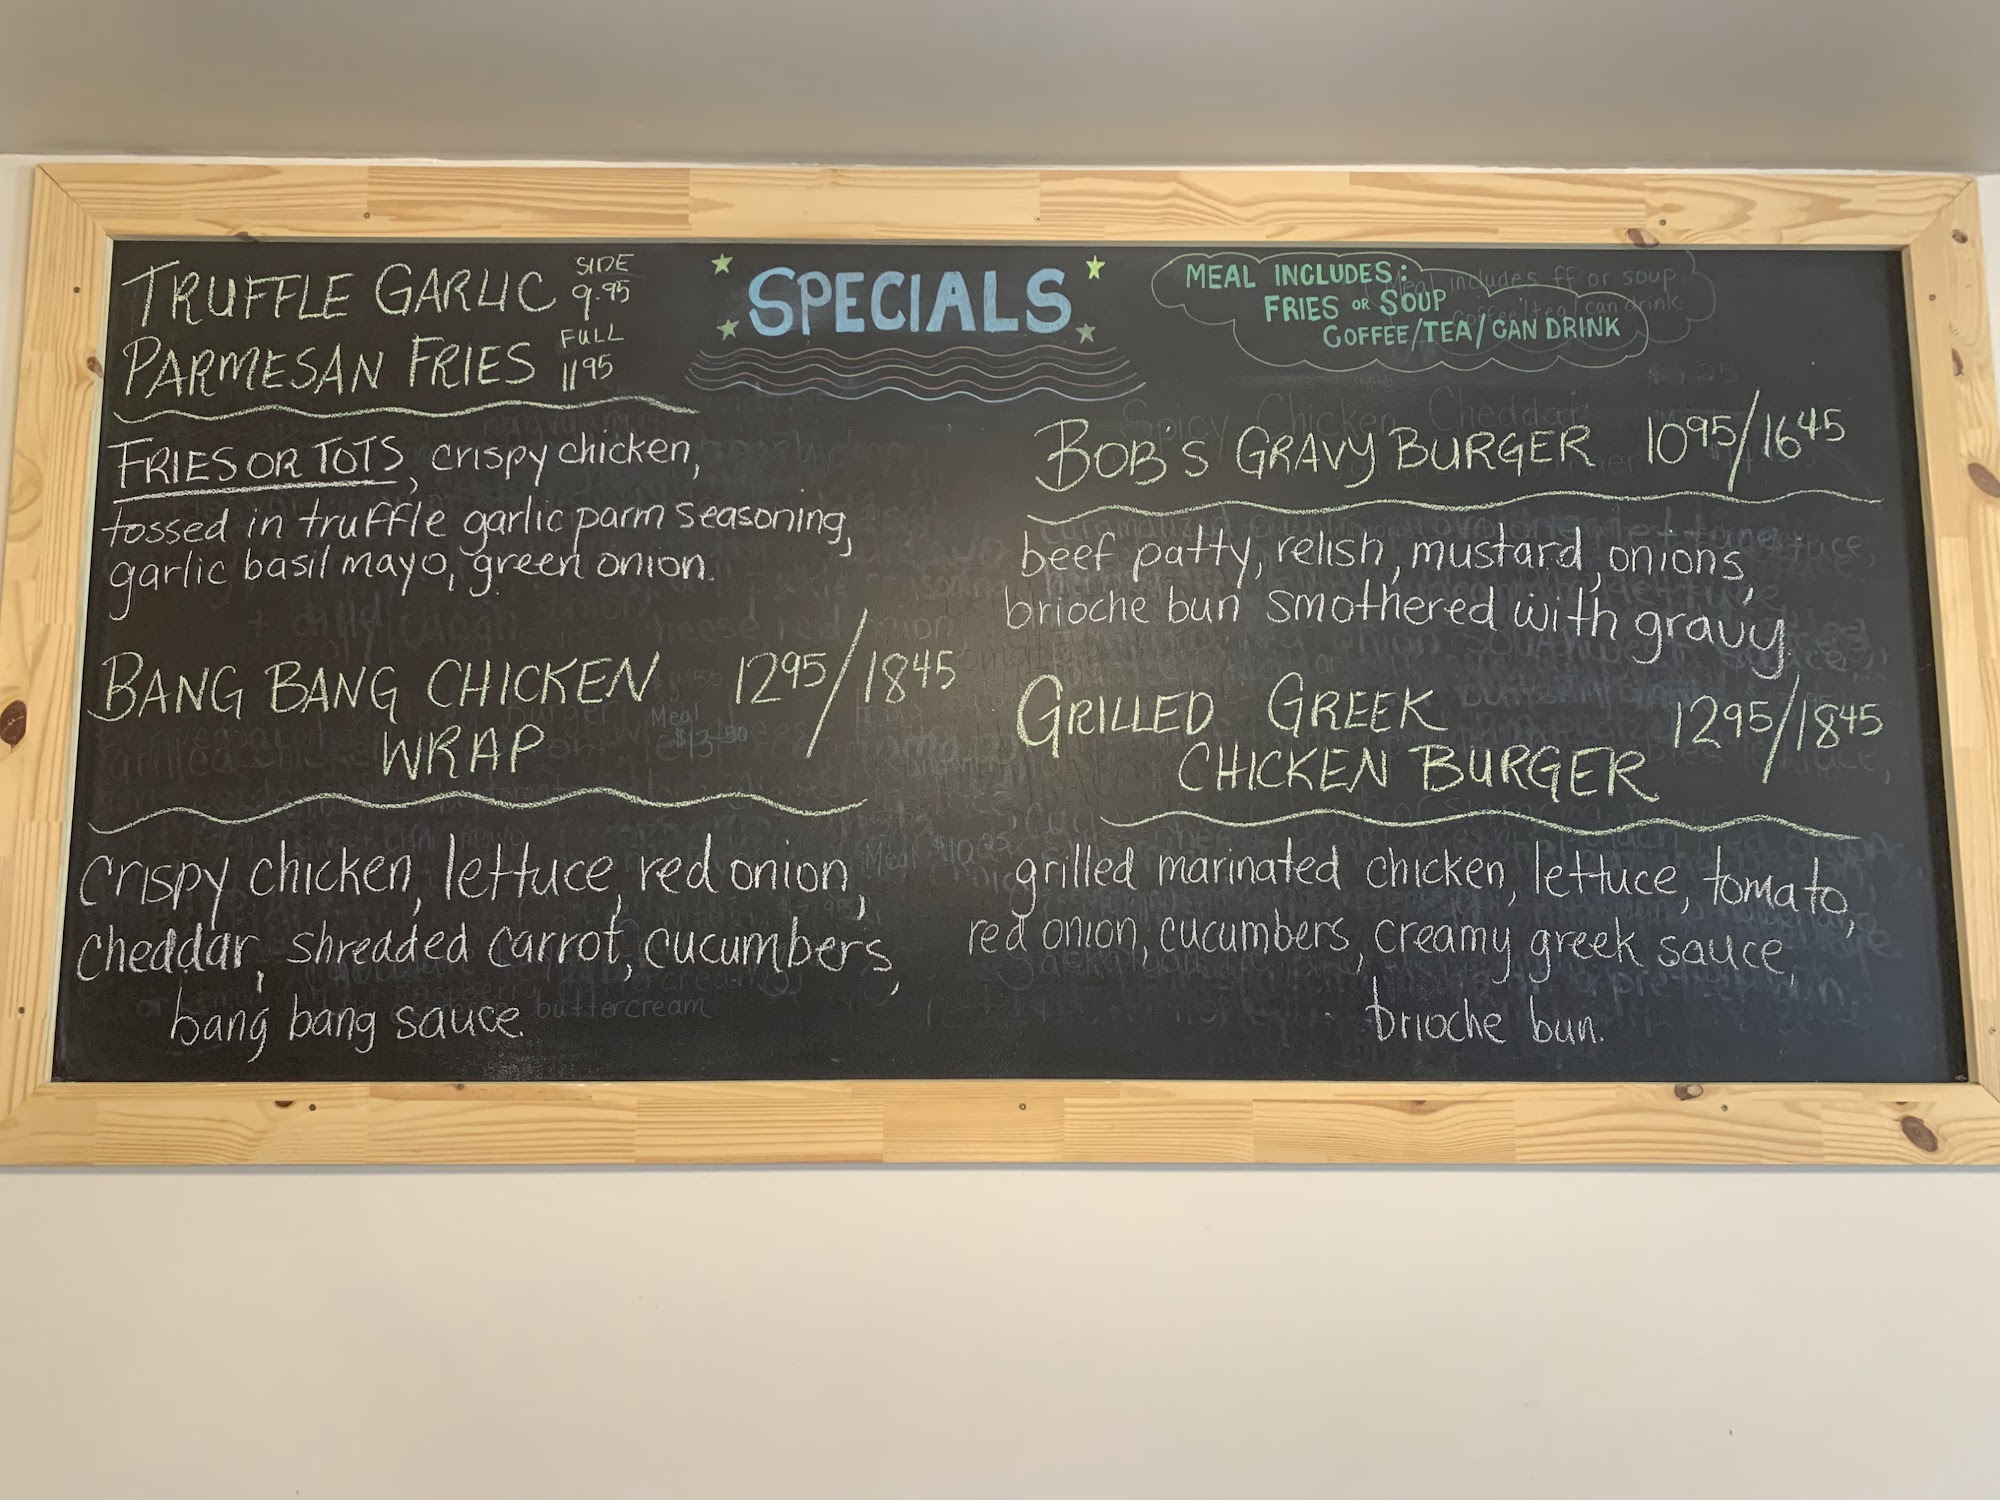 SPECIALS
TRUFFLE GARLIC SIDE 9.95
PARMESAN FRIES FULL 1195
FRIES OR TOTS, crispy chicken,
tossed in truffle garlic parm seasoning,
garlic basil mayo, green onion.
BANG BANG CHICKEN 1295/1845
WRAP
crispy chicken, lettuce, red onion,
cheddar, shredded carrot, cucumbers,
bang bang sauce.
MEAL INCLUDES:
FRIES OR SOUP
COFFEE/TEA/CAN DRINK
BOB'S GRAVY BURGER 1095/1645
beef patty, relish, mustard, onions,
brioche bun smothered with gravy.
GRILLED GREEK
CHICKEN BURGER 1295/1845
grilled marinated chicken, lettuce, tomato,
red onion, cucumbers, creamy greek sauce,
brioche bun.